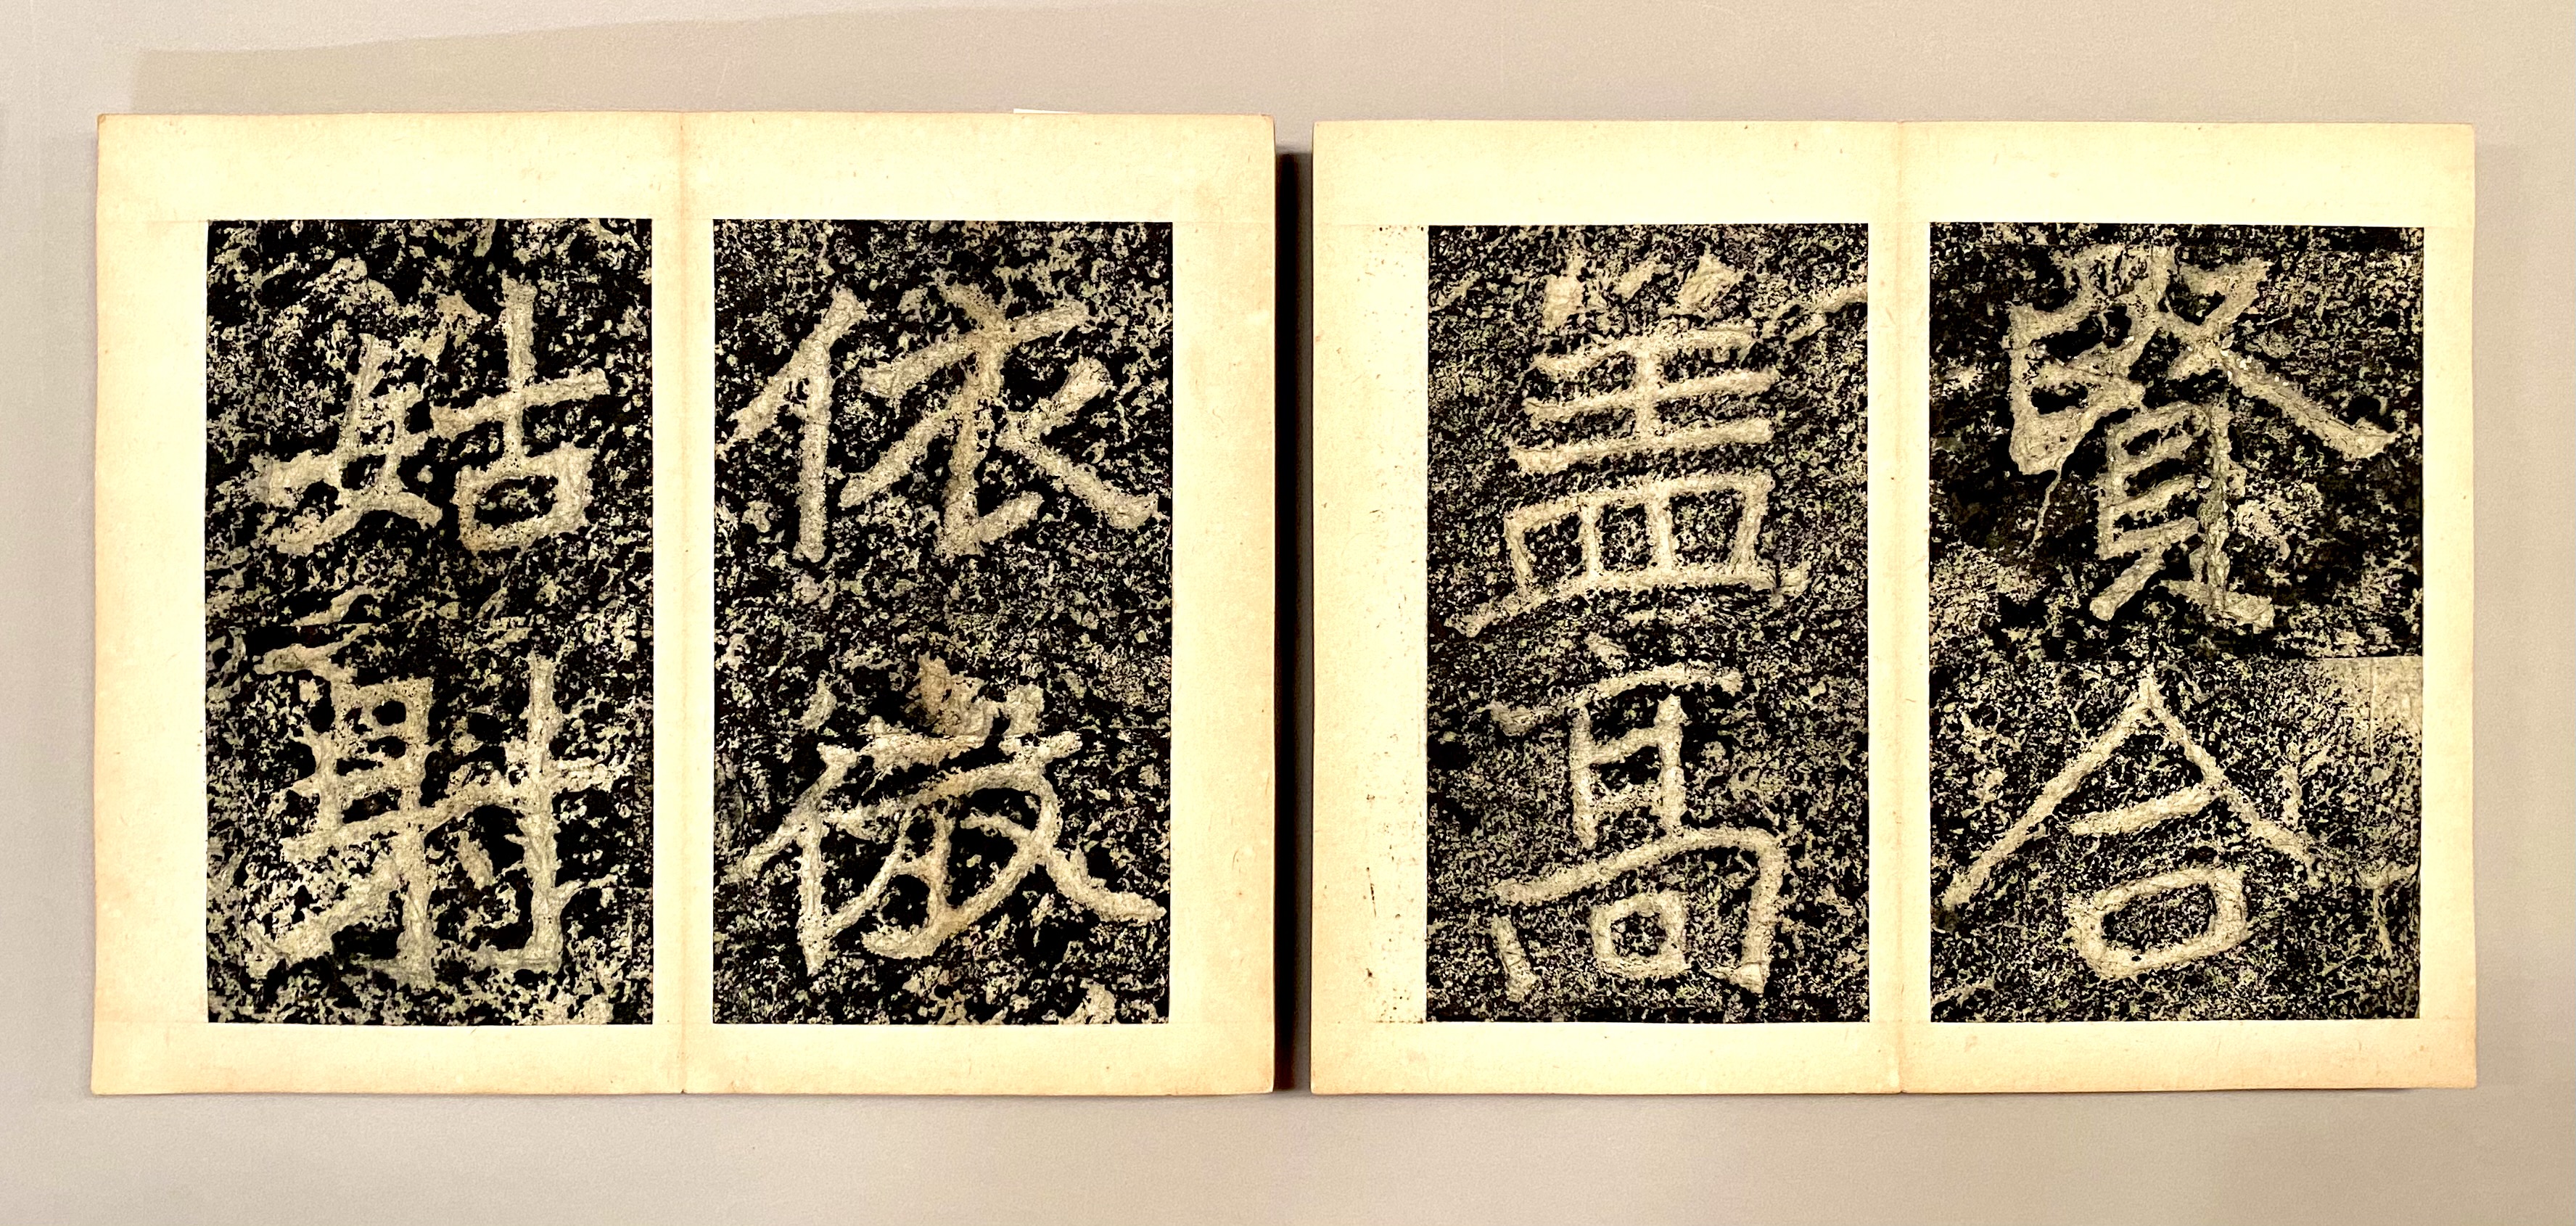 賢合
盖高
依微
姑射